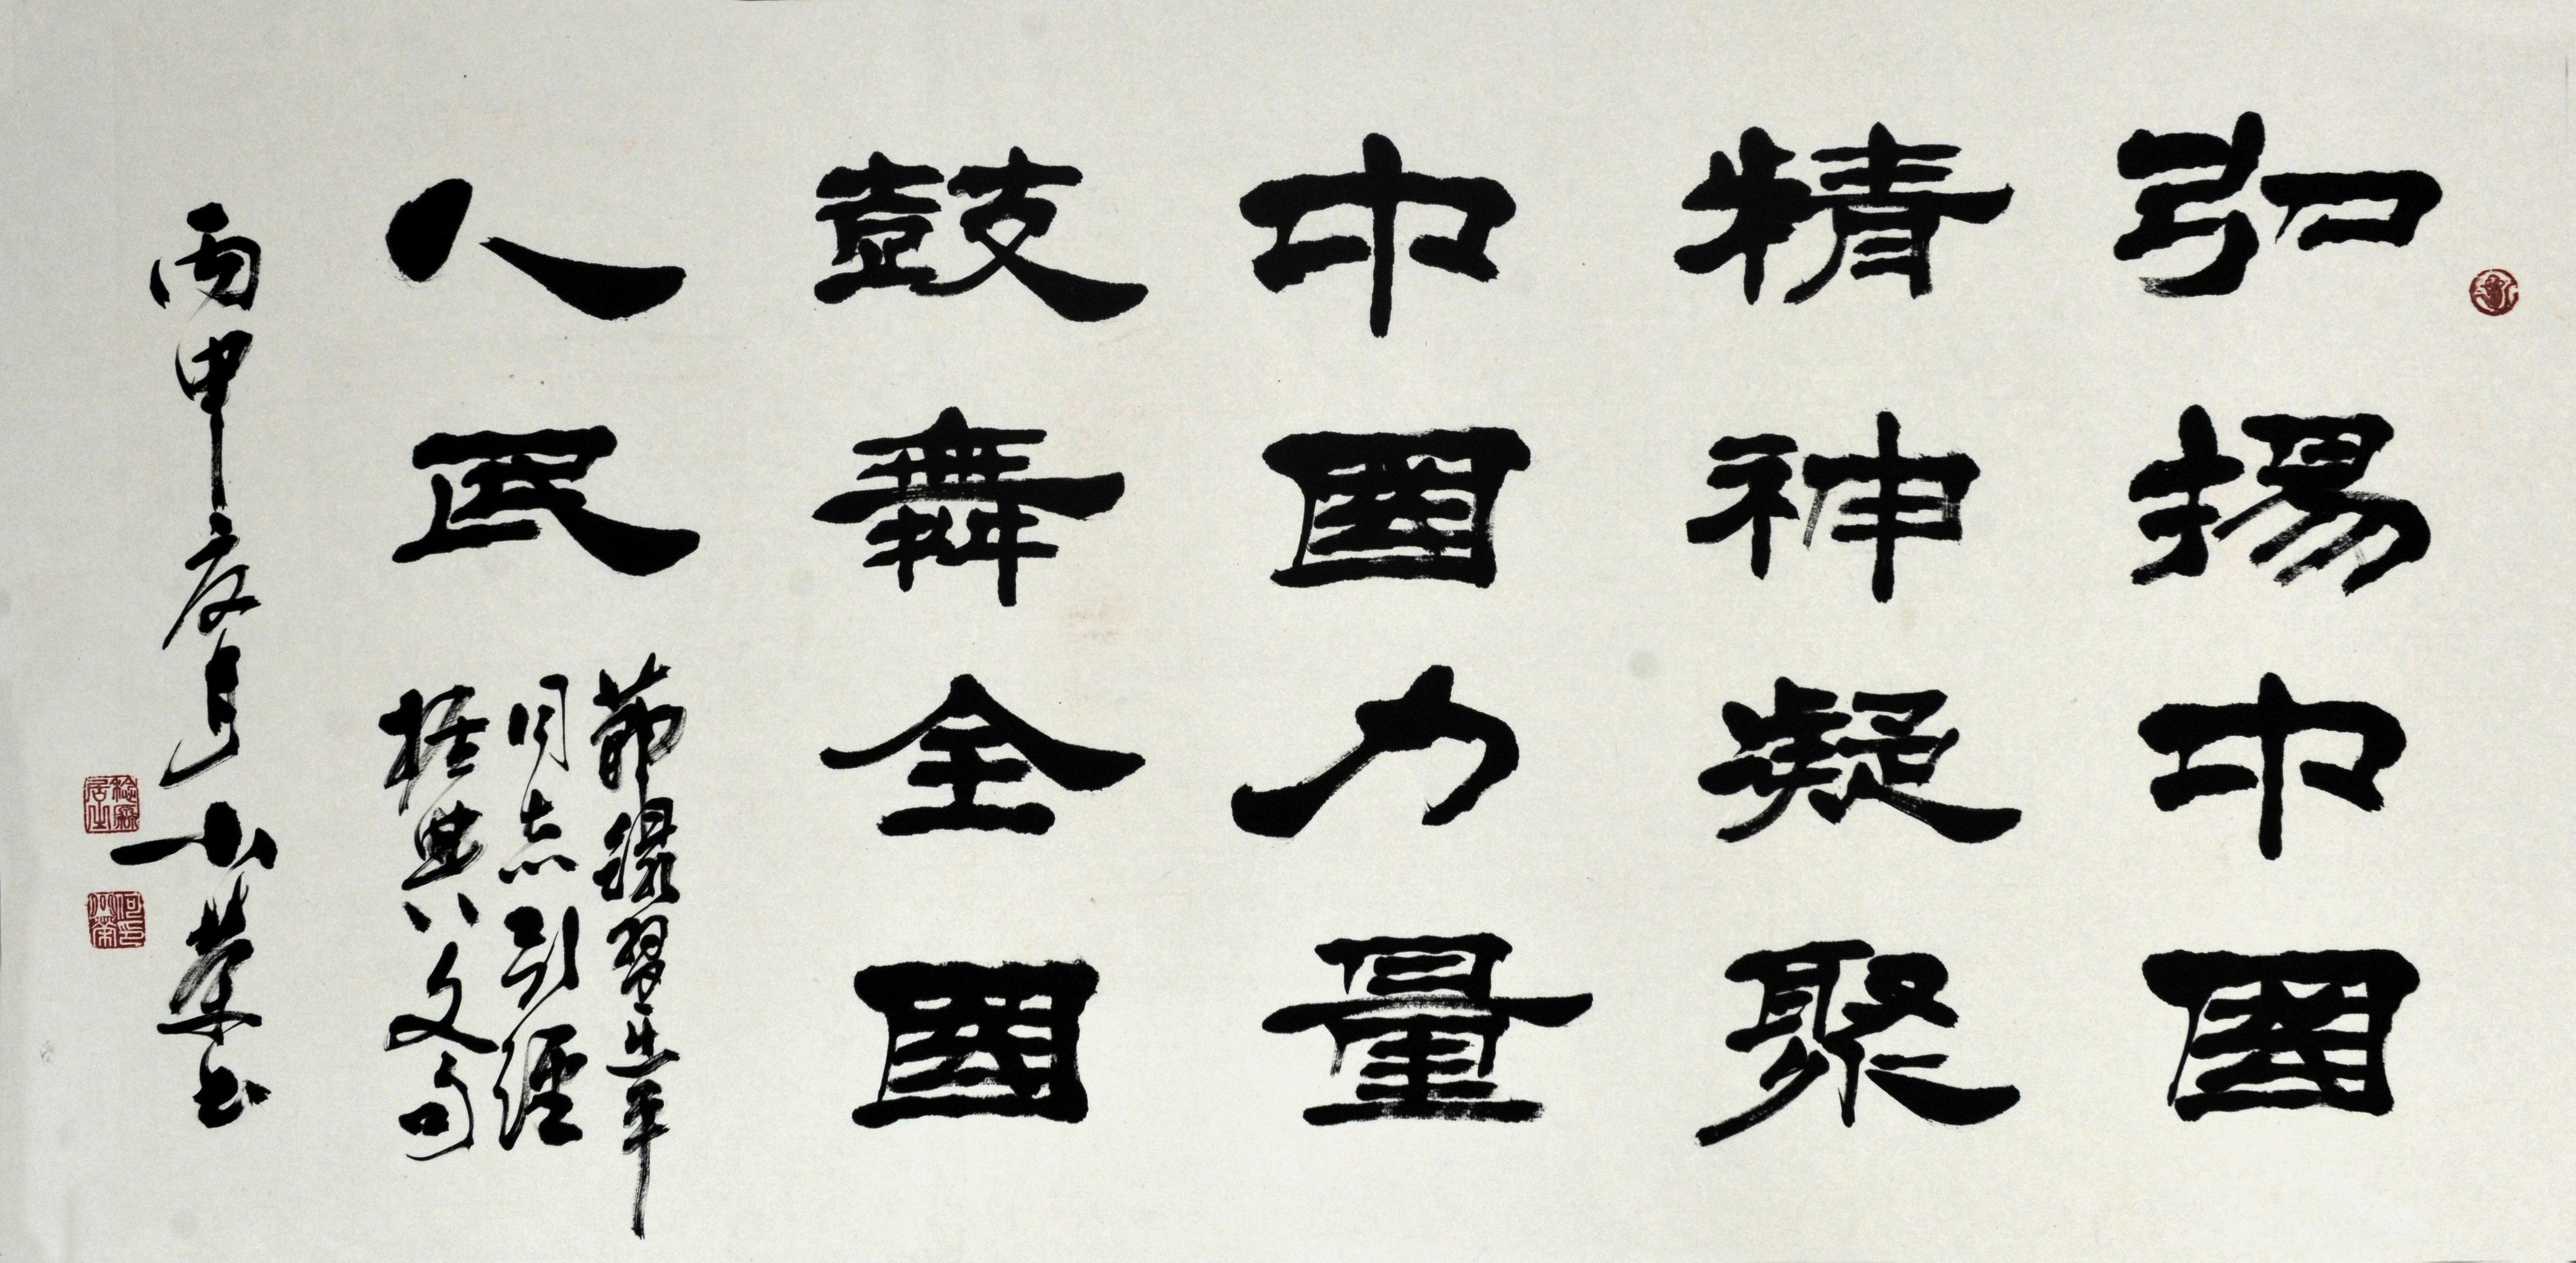 弘揚中國
精神凝聚
中國力量
鼓舞全國
人民
節錄習近平
同志引經
據典八文句
丙申夏月 小榮书